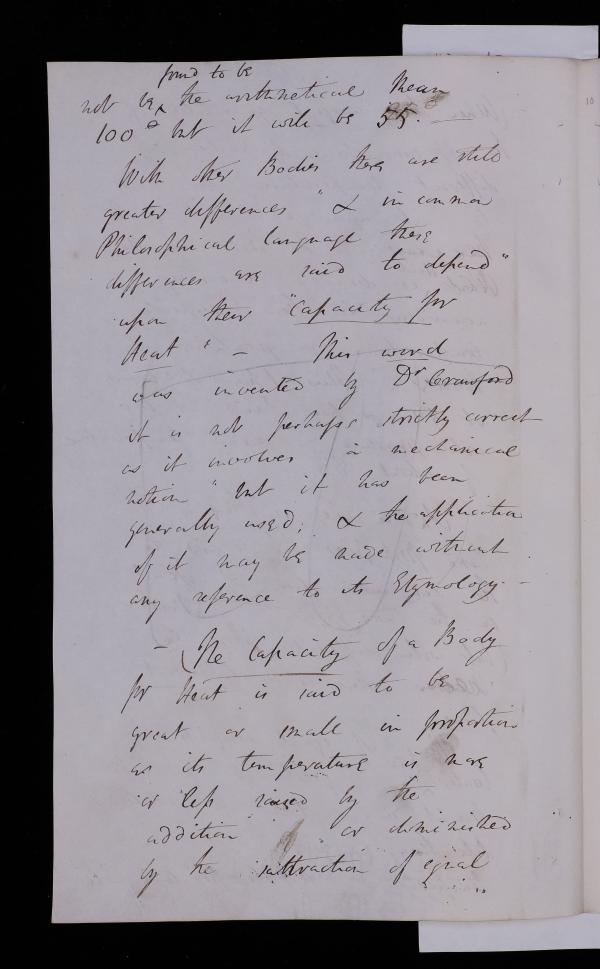 found to be
not be the arithmetical Mean
100° but it will be 55.
With other Bodies there are still
greater differences " & in common
Philosophical language these
differences are said to depend"
upon their "Capacity for
Heat" - This word
was invented by Dr Crawford
it is not perhaps strictly correct
as it involves a mechanical
notion " but it has been
generally used; & the application
of it may be made without
any reference to its Etymology -
- (The Capacity of a Body
for Heat is said to be
great or small in proportion
as its temperature is more
or less raised by the
addition or diminished
by the subtraction of equal